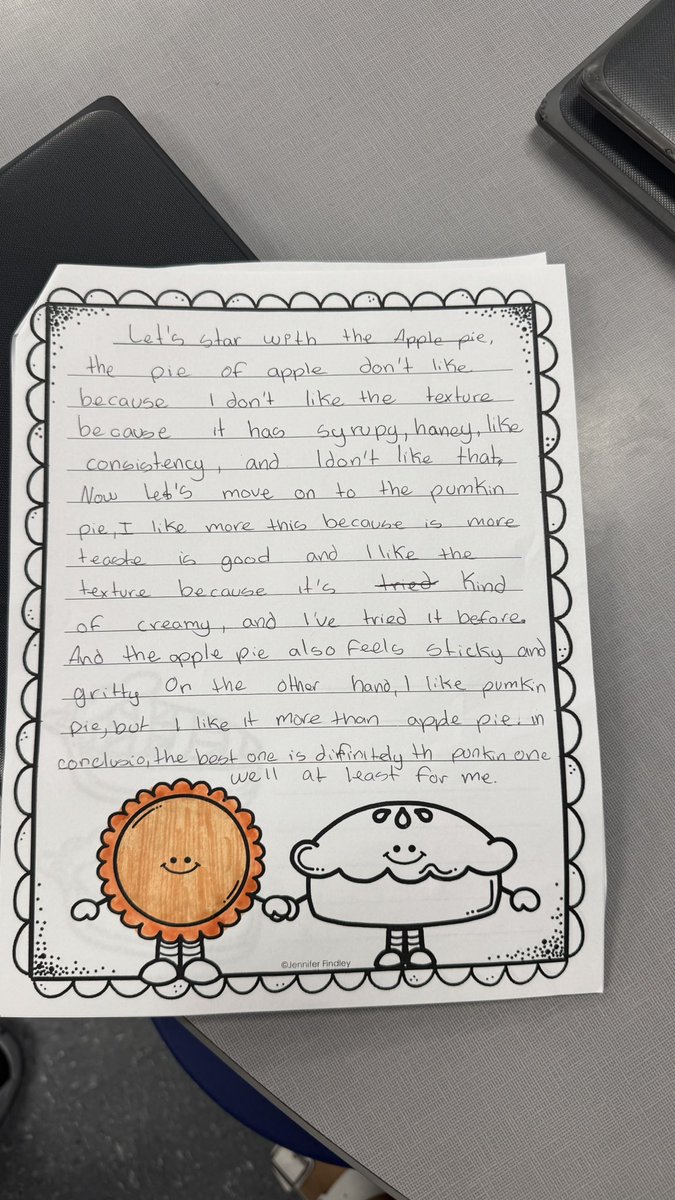 Let's star with the Apple pie,
the pie of apple don't like
because I don't like the texture
because it has syrupy, haney, like
consistency, and I don't like that,
Now Let's move on to the pumkin
pie, I like more this because is more
teaste is good and I like the
texture because it's tried kind
of creamy, and I've tried it before.
And the apple pie also feels sticky and
gritty On the other hand, I like pumkin
pie, but I like it more than apple pie. in
conclusio, the best one is difinitely th punkin one
we'll at least for me.
©Jennifer Findley